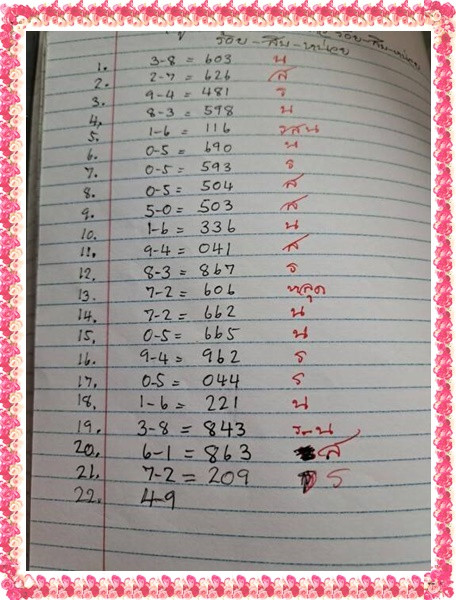 ร้อย-สิบ-หน่วย
1. 3-8 = 603 น
2. 2-7 = 626 ส
3. 9-4 = 481 ร
4. 8-3 = 598 น
5. 1-6 = 116 รสน
6. 0-5 = 690 น
7. 0-5 = 593 ร
8. 0-5 = 504 ส
9. 5-0 = 503 ส
10. 1-6 = 336 น
11. 9-4 = 041 ส
12. 8-3 = 867 ร
13. 7-2 = 606 หลุด
14. 7-2 = 662 น
15. 0-5 = 665 น
16. 9-4 = 962 ร
17. 0-5 = 044 ร
18. 1-6 = 221 น
19. 3-8 = 843 ร-น
20. 6-1 = 863 ส
21. 7-2 = 209 ร
22. 4-9